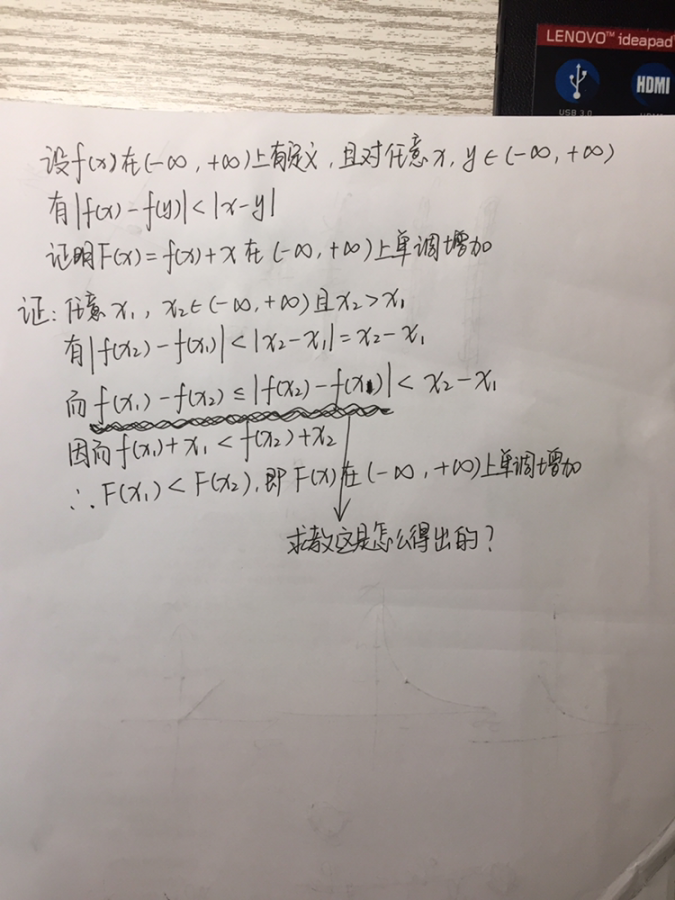 LENOVO™ ideapad
HDMI
USB 3.0
设f(x)在(-∞, +∞)上有定义, 且对任意x, y∈(-∞, +∞)
有|f(x)-f(y)|<|x-y|
证明F(x)=f(x)+x在(-∞, +∞)上单调增加
证: 任意x₁, x₂∈(-∞, +∞)且x₂>x₁
有|f(x₂)-f(x₁)|<|x₂-x₁|=x₂-x₁
而f(x₁)-f(x₂)≤|f(x₂)-f(x₁)|<x₂-x₁
因而f(x₁)+x₁<f(x₂)+x₂
∴F(x₁)<F(x₂), 即F(x)在(-∞, +∞)上单调增加
求教这是怎么得出的?